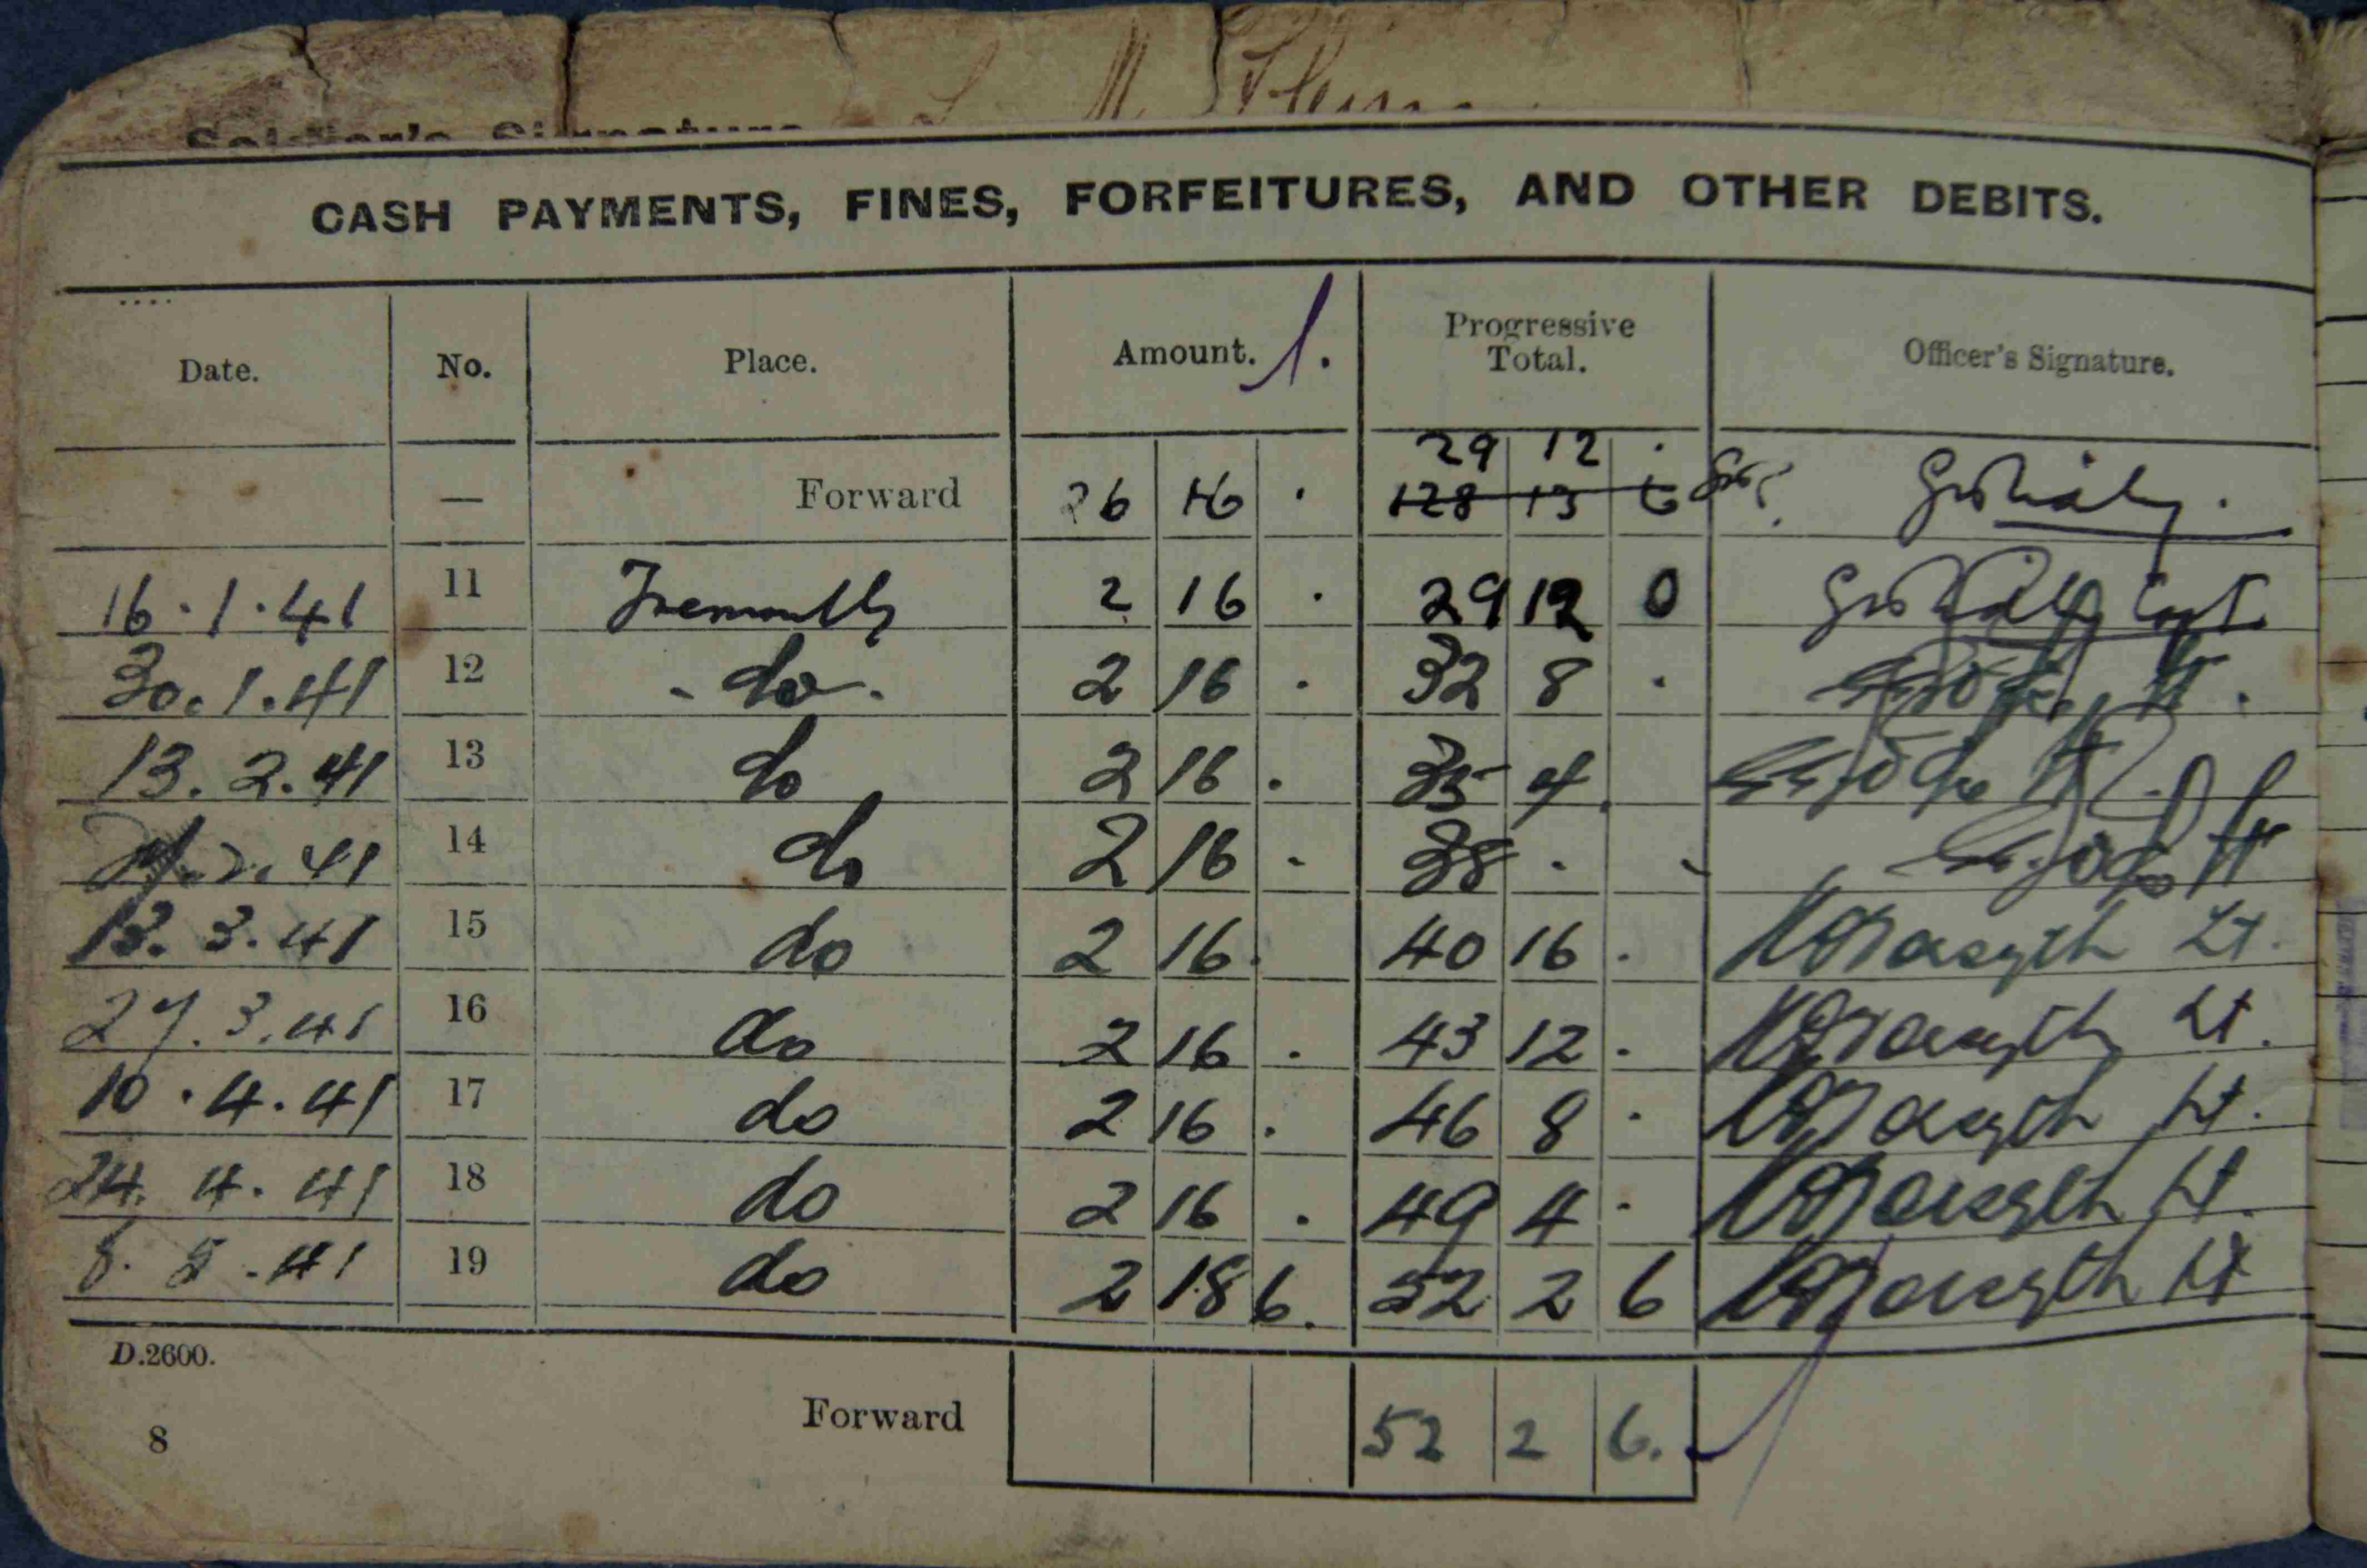 Soldier's Signature
CASH PAYMENTS, FINES, FORFEITURES, AND OTHER DEBITS.
Date. No. Place. Amount. Progressive Total. Officer's Signature.
29 12 .
— Forward 26 16 . 128 13 6
16.1.41 11 2 16 . 29 12 0 Capt.
30.1.41 12 - do - 2 16 . 32 8 . Lt.
13.2.41 13 do 2 16 . 35 4 . Lt
27.2.41 14 do 2 16 - 38 . - Lt
13.3.41 15 do 2 16 . 40 16 . Forsyth Lt.
27.3.41 16 do 2 16 . 43 12 . Forsyth Lt.
10.4.41 17 do 2 16 . 46 8 . Forsyth Lt.
24.4.41 18 do 2 16 . 49 4 . Forsyth Lt.
8.5.41 19 do 2 18 6. 52 2 6 Forsyth Lt
D.2600.
Forward 52 2 6.
8